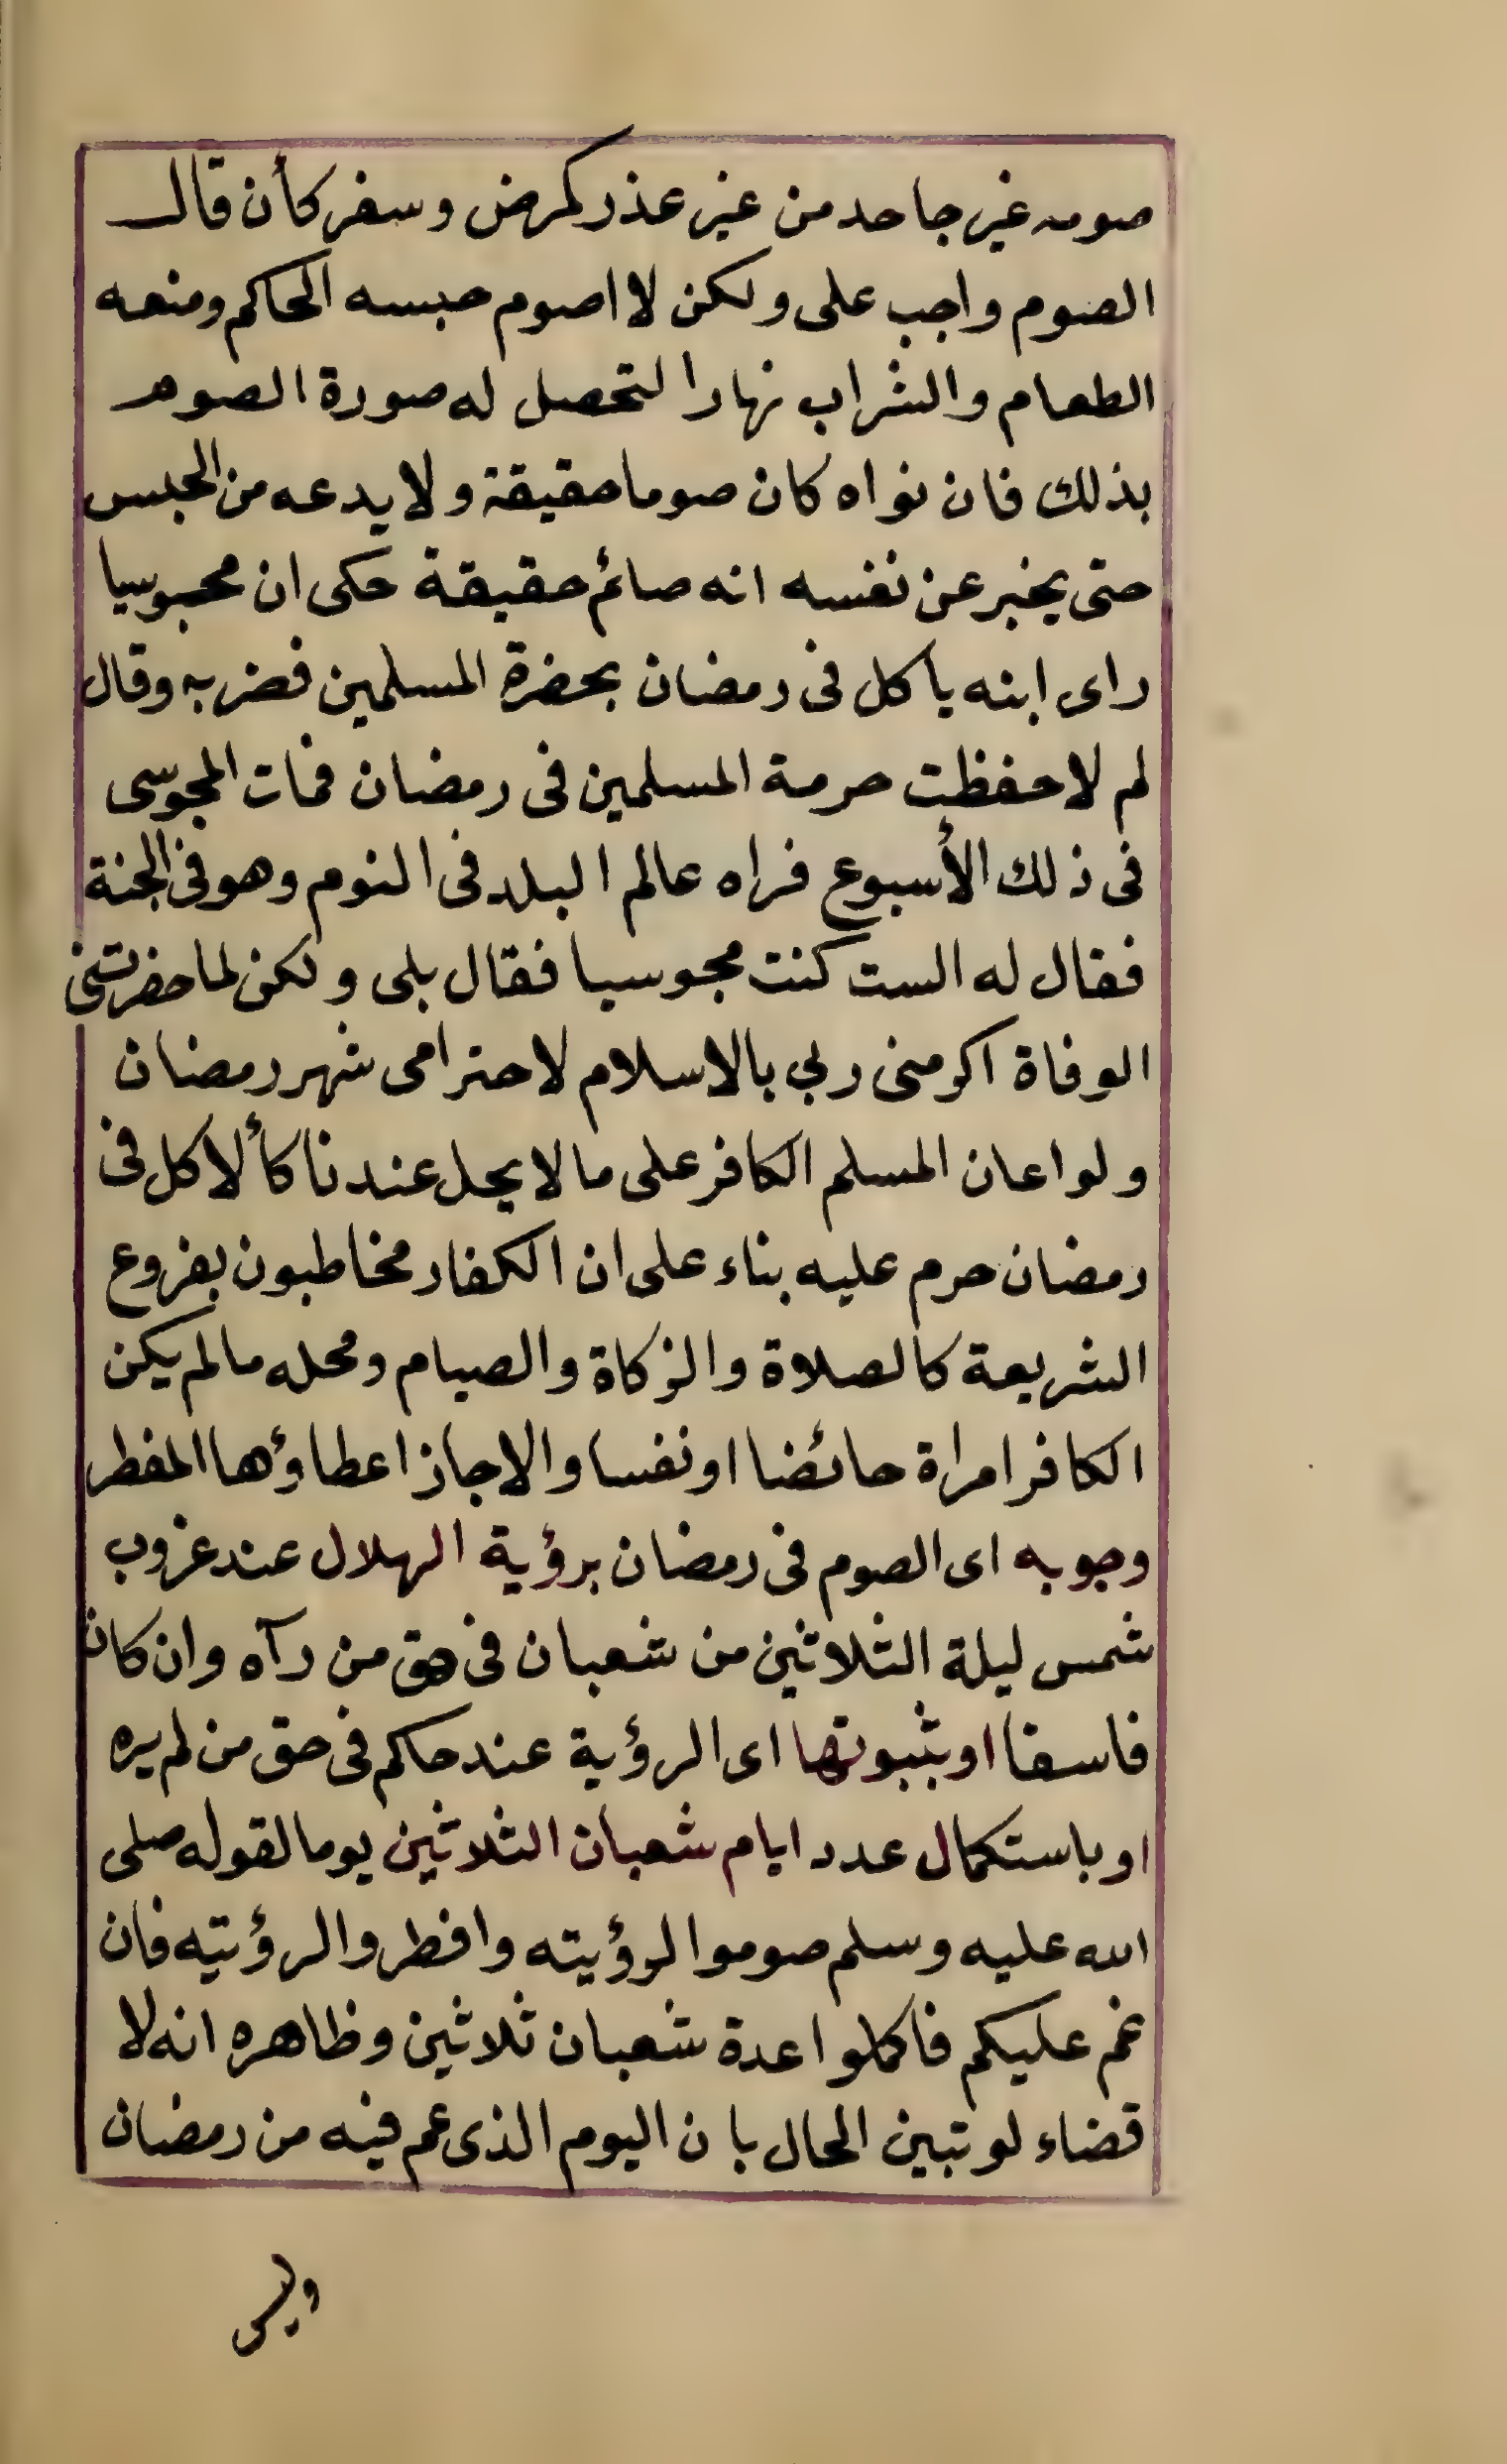 صومه غير جاحد من غير عذر كمرض وسفر كأن قال
الصوم واجب على ولكن لا اصوم حبسه الحاكم ومنعه
الطعام والشراب نهارا لتحصل له صورة الصوم
بذلك فان نواه كان صوما حقيقة ولا يدعه من الحبس
حتى يخبر عن نفسه انه صائم حقيقة حكى ان مجوسيا
راى ابنه ياكل فى رمضان بحضرة المسلمين فضربه وقال
لم لا حفظت حرمة المسلمين فى رمضان فمات المجوسى
فى ذلك الأسبوع فراه عالم البلد فى النوم وهو فى الجنة
فقال له الست كنت مجوسيا فقال بلى ولكن لما حضرتنى
الوفاة اكرمنى ربي بالاسلام لاحترامى شهر رمضان
ولو اعان المسلم الكافر على ما لا يحل عندنا كألاكل فى
رمضان حرم عليه بناء على ان الكفار مخاطبون بفروع
الشريعة كالصلاة والزكاة والصيام ومحله مالم يكن
الكافر امراة حائضا او نفسا والاجاز اعطاؤها المفطر
وجوبه اى الصوم فى رمضان برؤية الهلال عند غروب
شمس ليلة الثلاثين من شعبان فى حق من رآه وان كان
فاسقا او بثبوتها اى الرؤية عند حاكم فى حق من لم يره
او باستكمال عدد ايام شعبان الثلاثين يوما لقوله صلى
الله عليه وسلم صوموا لرؤيته وافطروا لرؤيته فان
غم عليكم فاكملوا عدة شعبان ثلاثين وظاهره انه لا
قضاء لو تبين الحال بان اليوم الذى عم فيه من رمضان
وليس